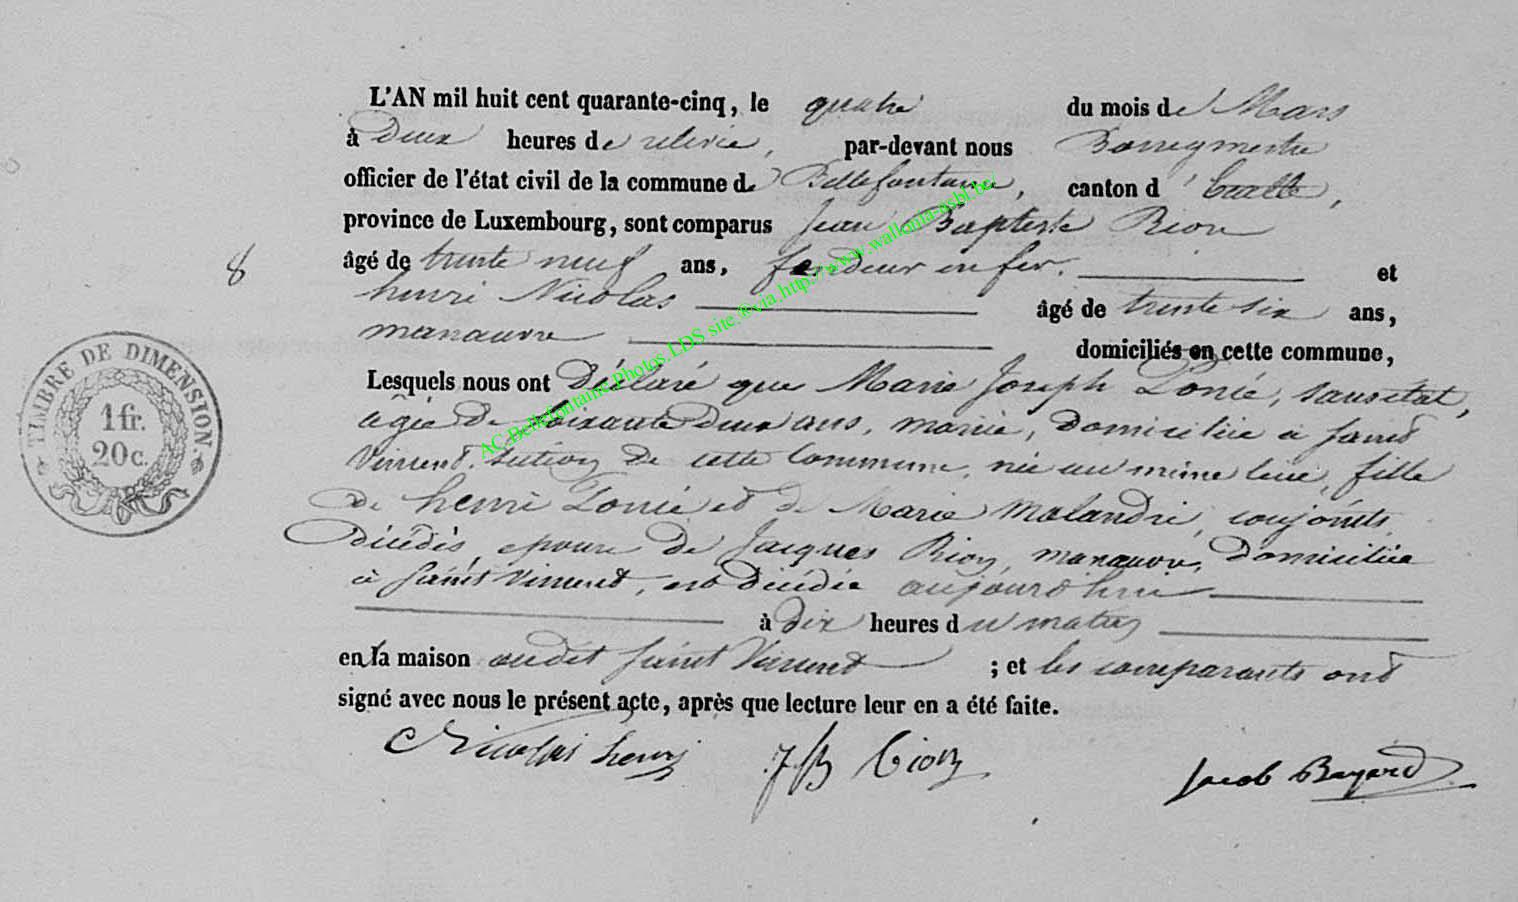 L'AN mil huit cent quarante-cinq, le quatre du mois de Mars
à Deux heures de relevée, par-devant nous Bourgmestre
officier de l'état civil de la commune de Bellefontaine, canton d'Etalle,
province de Luxembourg, sont comparus Jean Baptiste Rion
8
âgé de trente neuf ans, fendeur en fer. et
henri Nicolas âgé de trente six ans,
manœuvre domiciliés en cette commune,
Lesquels nous ont Déclaré que Marie Joseph Lonié, sans etat,
agée de soixante deux ans, mariée, Domiciliée à Saint
Vincent, section de cette Commune, née au même lieu, fille
de henri Lonié et de Marie Malandri, conjoints
Décédés, epouse de Jacques Rion, manœuvre, Domiciliée
à Saint Vincent, est Décédée aujourd'hui
à dix heures du matin
en la maison audit Saint Vincent ; et les comparants ont
signé avec nous le présent acte, après que lecture leur en a été faite.
Nicolas henri JB Rion Jacob Bayard
TIMBRE DE DIMENSION
1 fr.
20 c.
AC.Bellefontaine.Photos.LDS site.®via.http://www.wallonia-asbl.be/